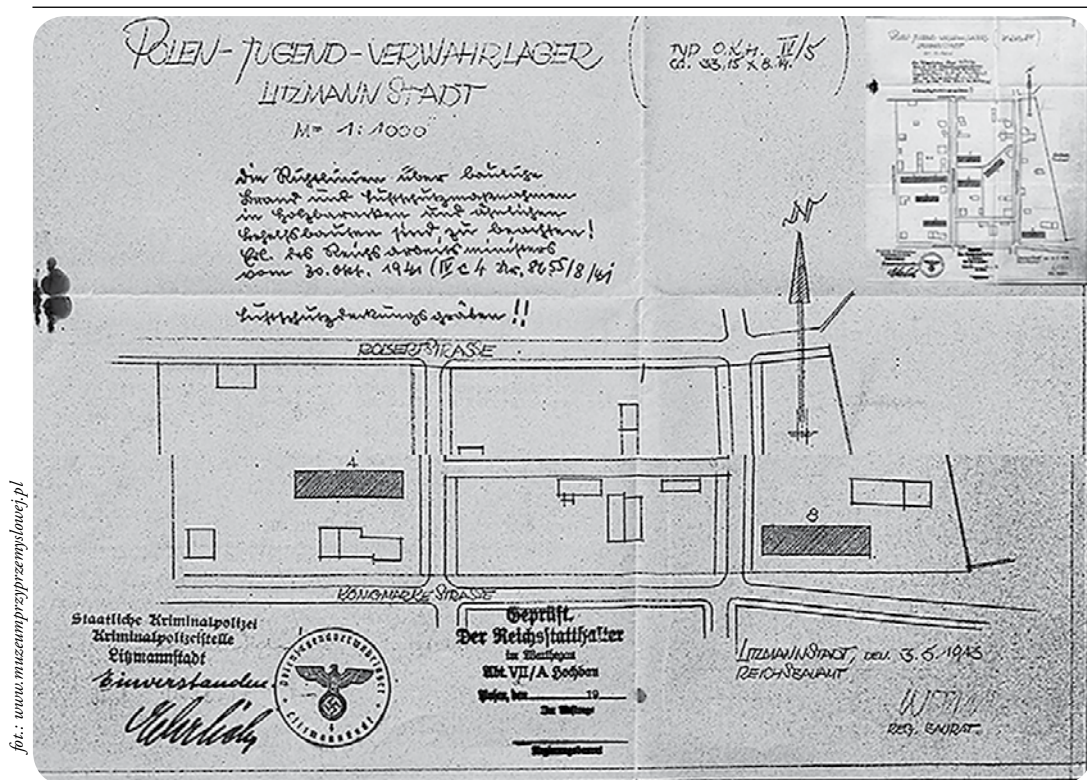 POLEN-JUGEND-VERWAHRLAGER
LITZMANNSTADT
M= 1:1000
TYP O.K.H. IV/5
ca. 33,15 x 8.14.
die Richtlinien über bauliche
Brand und Luftschutzmaßnahmen
in Holzbaracken und ähnlichen
Behelfsbauten sind zu beachten!
Erl. des Reichsarbeitsministers
vom 30. Okt. 1941 (IV c 4 Nr. 8655/8/41
Luftschutzdeckungsgräben!!
ROBERTSTRASSE
4
8
KÖNIGMARKSTRASSE
Staatliche Kriminalpolizei
Kriminalpolizeistelle
Litzmannstadt
Einverstanden
Litzmannstadt
Geprüft.
Der Reichsstatthalter
im Warthegau
Abt. VII/A Hochbau
Posen, den 19
LITZMANNSTADT, DEN 3.6.1943
REICHSBAUAMT
REG. BAURAT.
fot.: www.muzeumprzyprzemyslowej.pl